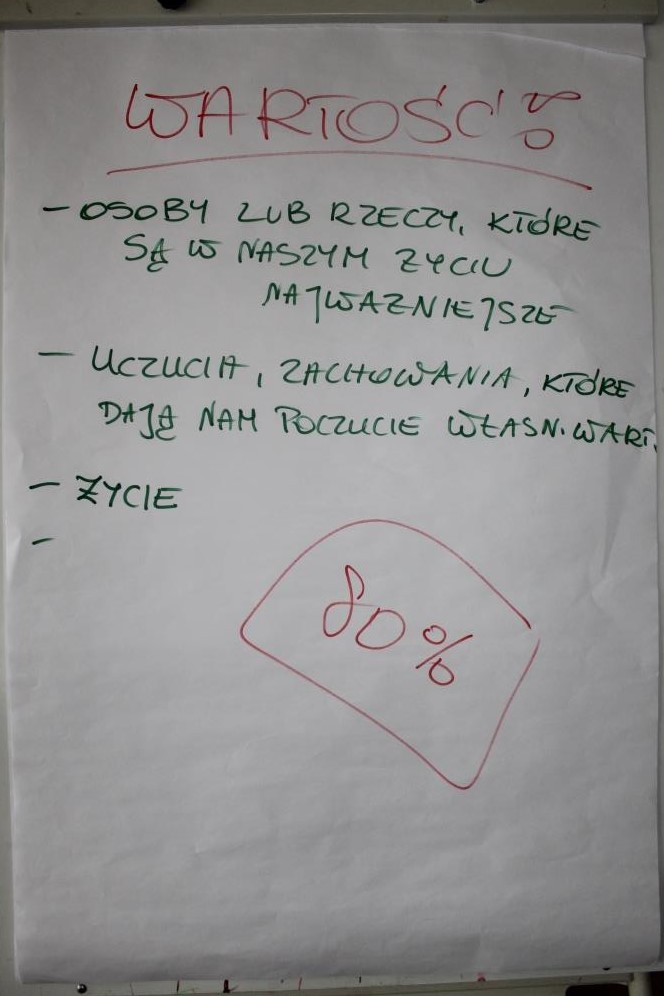 WARTOŚĆ?
- OSOBY LUB RZECZY, KTÓRE
SĄ W NASZYM ŻYCIU
NAJWAŻNIEJSZE
- UCZUCIA, ZACHOWANIA, KTÓRE
DAJĄ NAM POCZUCIE WŁASN. WART.
- ŻYCIE
-
80%